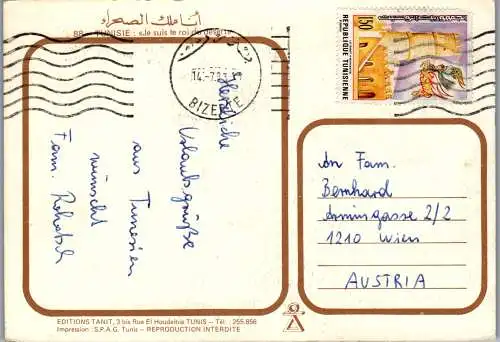 أنا ملك الصحراء
88 - TUNISIE : «Je suis le roi du désert»
14.-7.8
BIZERTE
150
REPUBLIQUE TUNISIENNE
Herzliche
Urlaubsgrüße
aus Tunesien
wünscht
Fam.
An Fam.
Bernhard
Armingasse 2/2
1210 Wien
AUSTRIA
EDITIONS TANIT, 3 bis Rue El Houdeibia TUNIS - Tél : 255.856
Impression : S.P.A.G. Tunis - REPRODUCTION INTERDITE